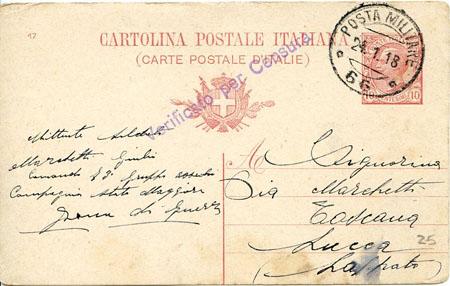 17
CARTOLINA POSTALE ITALIANA
(CARTE POSTALE D'ITALIE)
POSTA MILITARE
24.1.18
66
10
Verificato per Censura
Mittente Soldato
Marchetti Giulio
Comando 13° Gruppo assedio
Compagnia Stato Maggiore
Zona di Guerra
A Signorina
Pia Marchetti
Toscana
Lucca
25